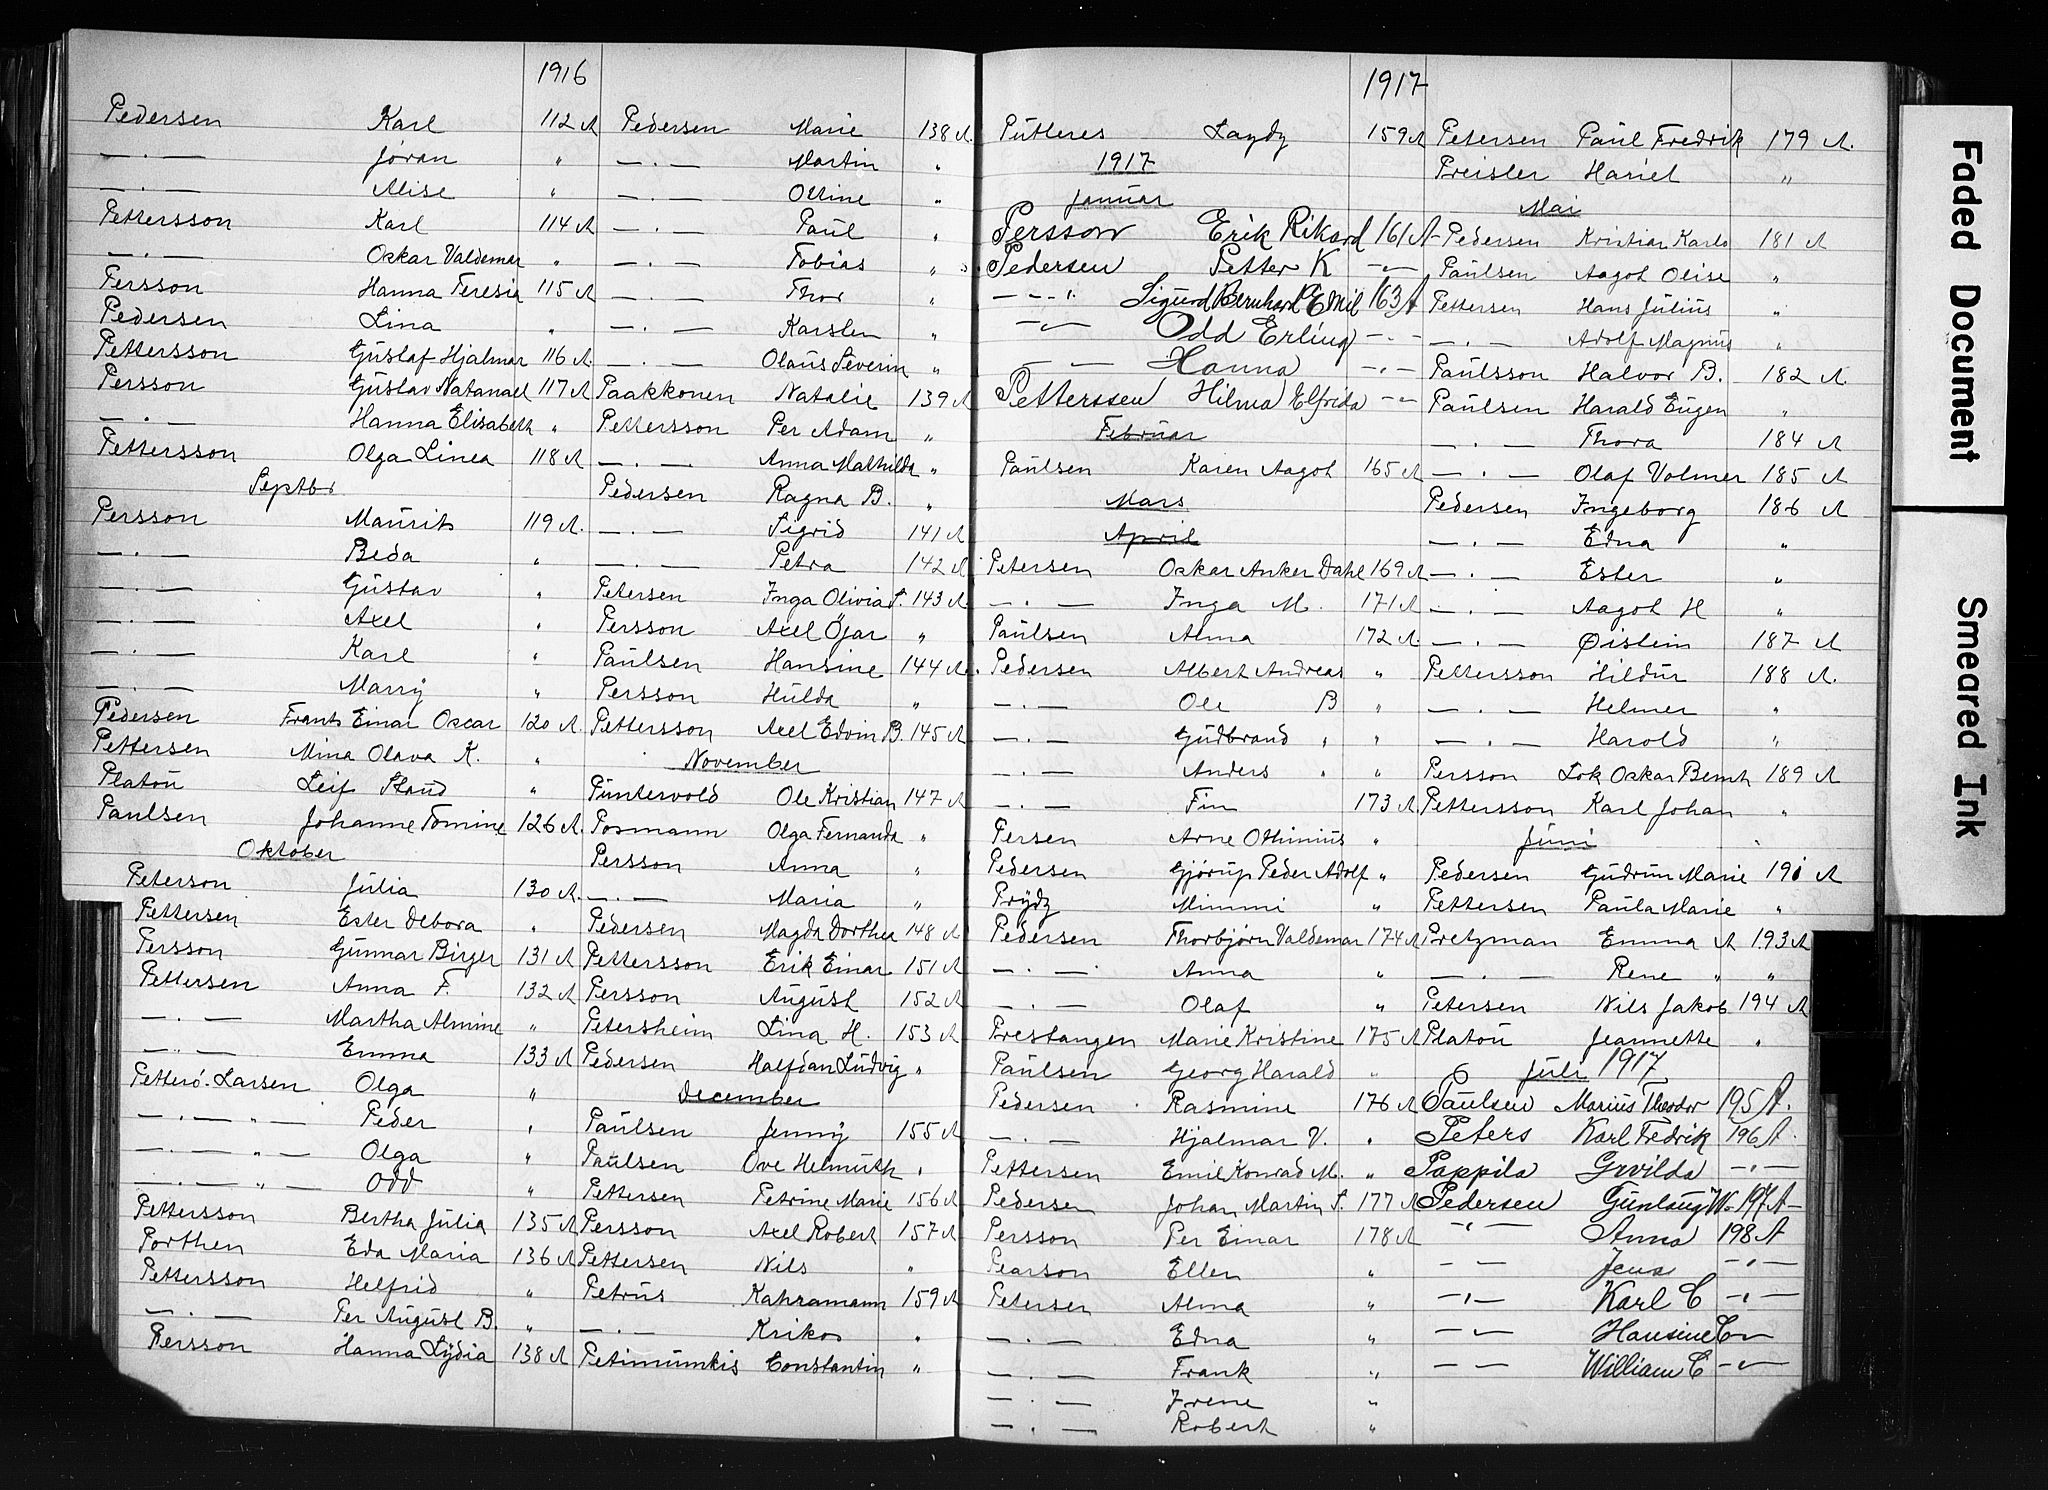 1916
Pedersen Karl 112 A
—.— Jöran "
—.— Alise "
Pettersson Karl 114 A
—.— Oskar Valdemar "
Persson Hanna Teresia 115 A
Pedersen Lina "
Pettersson Gustaf Hjalmar 116 A.
Persson Gustav Natanael 117 A
—.— Hanna Elisabeth "
Pettersson Olga Linea 118 A
Septbr
Persson Maurits 119 A.
—.— Beda "
—.— Gustav "
—.— Axel "
—.— Karl "
—.— Marry "
Pedersen Frants Einar Oscar 120 A.
Pettersen Mina Olava K. "
Platou Leif "
Paulsen Johanne Tomine 126 A.
Oktober
Peterson Julia 130 A.
Pettersen Ester Debora "
Persson Gunnar Birger 131 A
Pettersen Anna F. 132 A
—.— Martha Almine "
—.— Emma 133 A
Petterö-Larsen Olga "
—.— " — Peder "
—.— " — Olga "
—.— " — Odd "
Pettersson Bertha Julia 135 A
Porthen Eda Maria 136 A
Pettersson Helfrid "
—.— Per August B. "
Persson Hanna Lydia 138 A
Pedersen Marie 138 A.
—.— Martin "
—.— Olline "
—.— Paul "
—.— Tobias "
—.— Thor "
—.— Karsten "
—.— Olaus Severin "
Paakkonen Natalie 139 A
Pettersson Per Adam "
—.— Anna Mathilda "
Pedersen Ragna B. "
—.— Sigrid 141 A
—.— Petra 142 A
Petersen Inga Olivia S. 143 A
Persson Axel Öjar "
Paulsen Hansine 144 A.
Persson Hulda "
Pettersson Axel Edvin B. 145 A
November
Puntervold Ole Kristian 147 A
Posmann Olga Fernanda "
Persson Anna "
—.— Maria "
Pedersen Magda Dorthea 148 A
Pettersson Erik Einar 151 A
Persson August 152 A
Petersheim Lina H. 153 A
Pedersen Halfdan Ludvig "
December
Paulsen Jenny 155 A
Paulsen Ove Helmuth "
Pettersen Petrine Marie 156 A
Persson Axel Robert 157 A
Pettersen Nils "
Petrus Kahramann 159 A
—.— Krikos "
Petimumkis Constantin "
1917
Putteres Laydy 159 A
1917
Januar
Persson Erik Rikard 161 A
Pedersen Petter K —"—
—"— Sigurd Bernhard Emil 163 A
—"— Odd Erling —.—
—"— Hanna —.—
Petterssen Hilma Elfrida —"—
Februar
Paulsen Karen Aagot 165 A
Mars
April
Petersen Oskar Anker Dahl 169 A
—.— Inga M. 171 A
Paulsen Alma 172 A.
Pedersen Albert Andreas "
—.— Ole B "
—.— Gudbrand " "
—.— Anders " "
—.— Finn 173 A
Persen Arne Othinius "
Pedersen Gjörup Peder Adolf "
Prydz Mimmi "
Pedersen Thorbjørn Valdemar 174 A
—.— Anna "
—.— Olaf "
Prestangen Marie Kristine 175 A
Paulsen Georg Harald "
Pedersen Rasmine 176 A
—.— Hjalmar V. "
Pettersen Emil Konrad M. "
Pedersen Johan Martin S. 177 A
Persson Per Einar 178 A
Pearson Ellen "
Petersen Alma "
—.— Edna "
—.— Frank "
—.— Irene "
—.— Robert "
Petersen Paul Fredrik 179 A.
Preisler Hariet "
Mai
Pedersen Kristian Karlo 181 A
Paulsen Aagot Olise "
Pettersen Hans Julius "
—.— Adolf Magnus "
Paulsson Halvor B. 182 A
Paulsen Harald Eugen "
—.— Thora 184 A
—.— Olaf Volmer 185 A
Pedersen Ingeborg 186 A
—.— Edna "
—.— Ester "
—.— Aagot H "
—.— Øistein 187 A
Pettersson Hildur 188 A.
—.— Helmer "
—.— Harold "
Persson Lok Oskar Bernh 189 A
Pettersson Karl Johan "
Juni
Pedersen Gudrun Marie 191 A
Pettersen Paula Marie "
Pretzman Emma A 193 A
—.— Rene " "
Petersen Nils Jakob 194 A
Platou Jeannette "
Juli 1917
Paulsen Marius Theodor 195 A.
Peters Karl Fredrik 196 A.
Pappila Grvilda —"—
Pedersen Gunlaug W. 197 A
—"— Anna 198 A
—"— Jens —"—
—"— Karl C —"—
—"— Hansine C —"—
—"— William C —"—
Faded Document
Smeared Ink